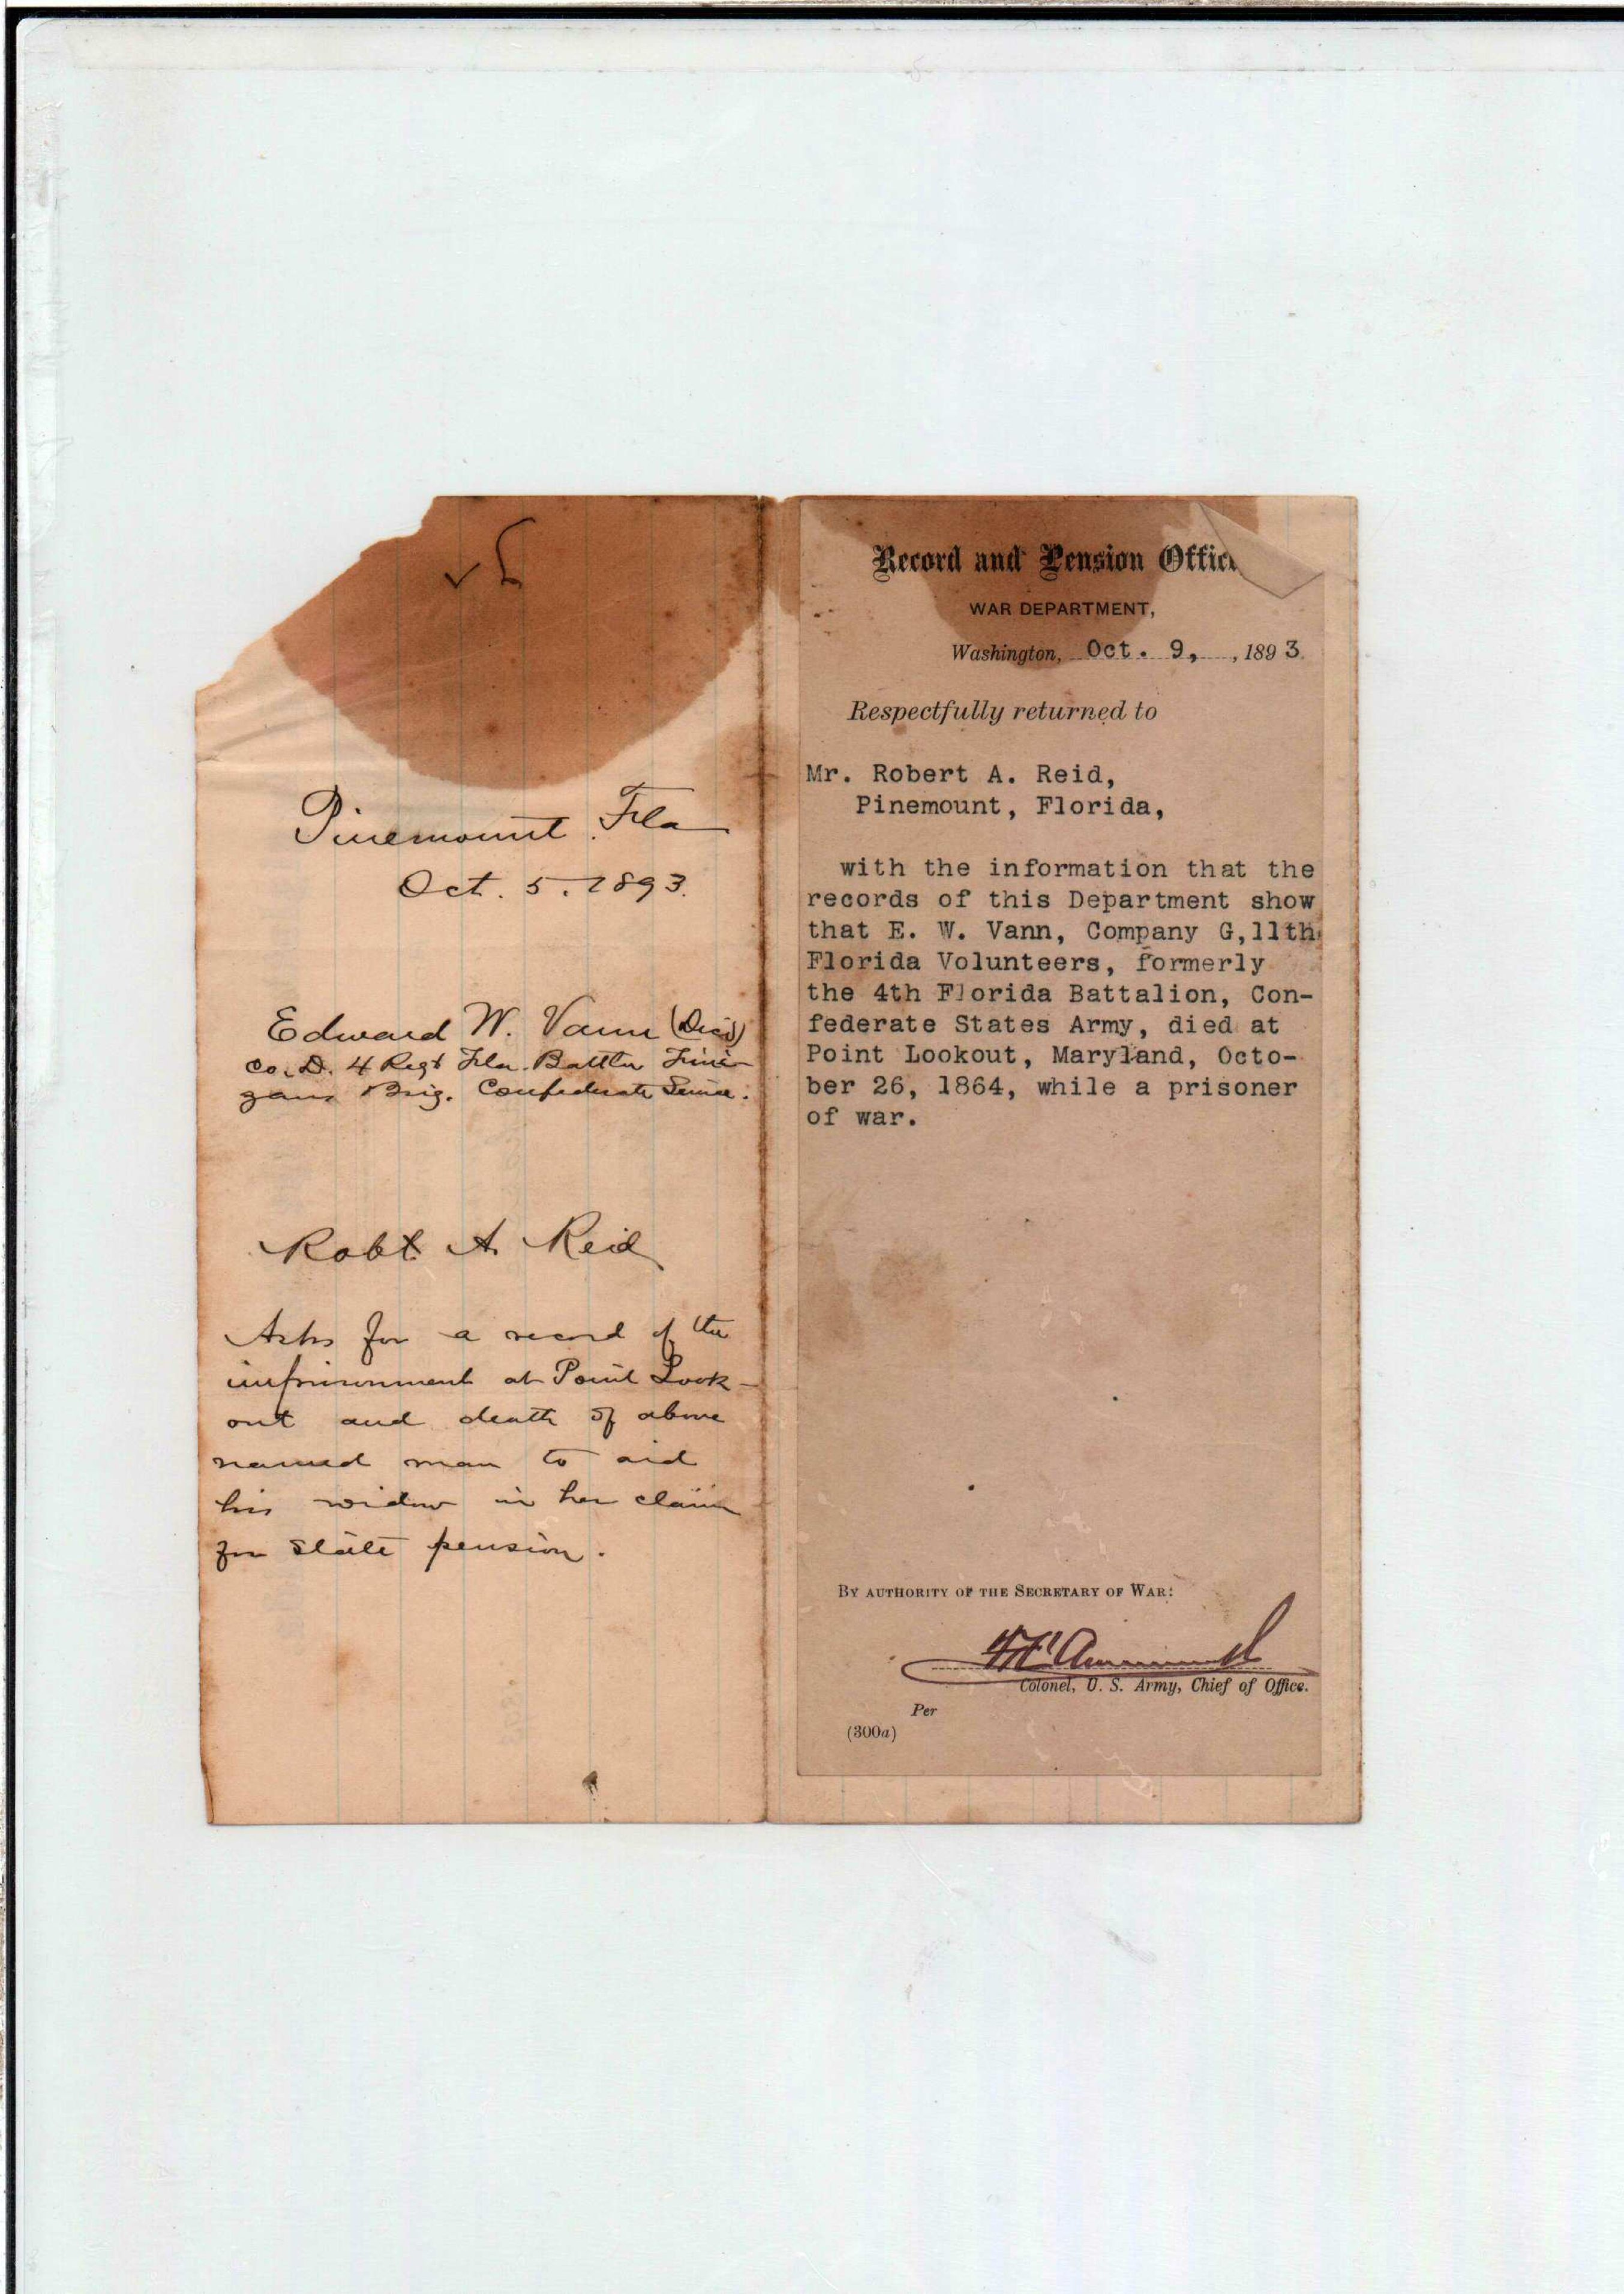 Pinemount Fla
Oct. 5. 1893.
Edward W. Vann (Decd)
Co. D. 4 Regt Fla. Battln Fini-
gans Brig. Confederate Service.
Robt. A. Reid
Asks for a record of the
imprisonment at Point Look-
out and death of above
named man to aid
his widow in her claim
for State pension.
Record and Pension Offic
WAR DEPARTMENT,
Washington, Oct. 9, , 1893.
Respectfully returned to
Mr. Robert A. Reid,
Pinemount, Florida,
with the information that the
records of this Department show
that E. W. Vann, Company G,11th
Florida Volunteers, formerly
the 4th Florida Battalion, Con-
federate States Army, died at
Point Lookout, Maryland, Octo-
ber 26, 1864, while a prisoner
of war.
BY AUTHORITY OF THE SECRETARY OF WAR:
Colonel, U. S. Army, Chief of Office.
Per
(300a)